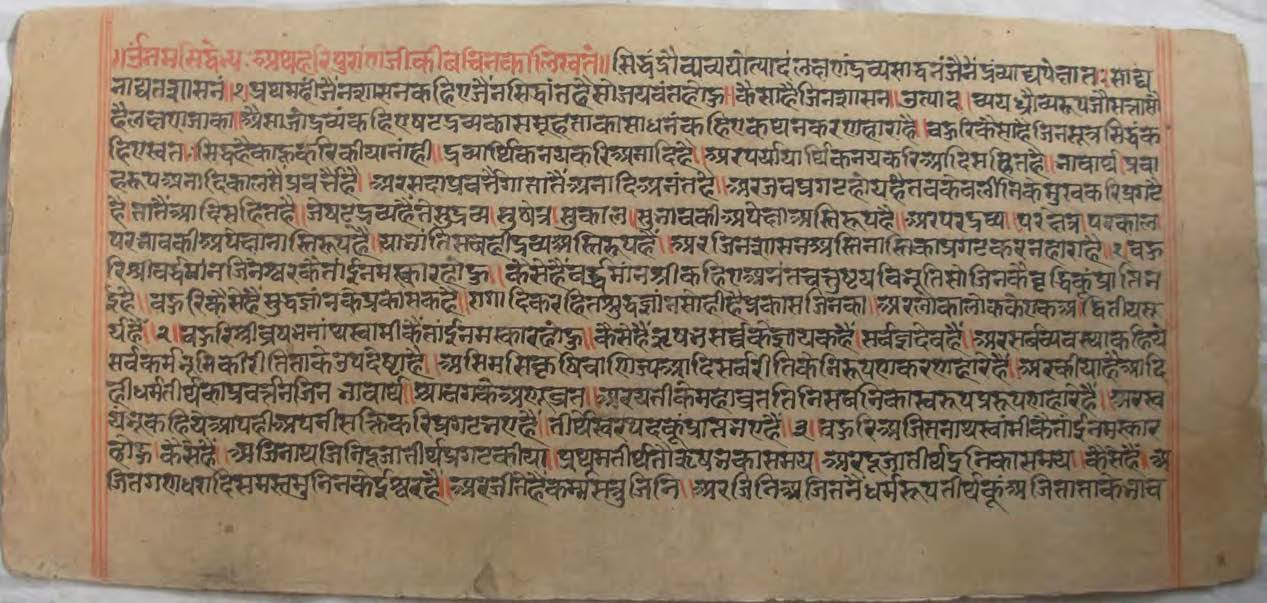 ॥र्उनमसिद्धेभ्यः अथहरिपुराणजीकीबचनिकालिखतं॥ सिद्धंध्रौव्यव्ययोत्पादलक्षणंद्रव्यसाधनंजैनंद्रव्याद्यपेक्षातःसाद्य
नाद्यनशासनं॥१ प्रथमहीजैनशासनकहिएजैनसिद्धांतहैसोजयवंतहोऊ॥कैसाहैजिनशासन।उत्पाद।व्ययध्रौव्यरूपजोसत्तासो
हैलक्षणजाका॥अैसाजोद्रव्यकहिएषटद्रव्यकासमूहताकासाधनकहिएकथनकरणहाराहै॥बऊरिकैसाहैजिनसूत्रसिद्धक
हिएस्वत।सिद्धहैकाहूकरिकीयानांही॥द्रव्यार्थिकनयकरिअनादिहै॥अरपर्यायार्थिकनयकरिआदिसहितहै॥भावार्थप्रवा
हरूपअनादिकालसैप्रवर्त्तैहै॥अरसदाप्रवर्त्तैगातातैंअनादिअनंतहै॥अरजबप्रगटहोयहैतबकेवलीनिकेमुखकरिप्रगटे
हैतातैंआदिसहितहै॥जेषटद्रव्यहैतेसुद्रव्य।सुक्षेत्र।सुकाल।सुभावकीअपेक्षाअस्तिरूपहै॥अरपरद्रव्य।परक्षेत्र।परकाल
परभावकीअपेक्षानास्तिरूपहै॥याभांतिसबहीद्रव्यअस्तिरूपहैं॥अरजिनशासनअस्तिनास्तिकाप्रगटकरनहाराहै॥१बऊ
रिश्रीवर्द्धमानजिनेश्वरकेताईनमस्कारहोऊ॥कैसेहैवर्द्धमानश्रीकहिएअनंतचतुष्टयविभूतिसोजिनकैवृद्धिकूंप्राप्तिभ
ईहै॥बऊरिकैसेहैसुद्धज्ञानकेप्रकासकहै॥रागादिकरहितशुद्धज्ञानसोहीहैप्रकासजिनका।अरलोकालोककेएकअद्वितीयसू
र्यहै॥२॥बऊरिश्रीवृषभनाथस्वामीकैताईनमस्कारहोऊ॥कैसेहैंऋषभसर्वकेज्ञायकहै॥सर्वज्ञदेवहै॥अरसर्बव्यवस्थाकहिये
सर्वकर्मभूमिकीरीतिताकेउपदेष्टाहै॥असिमसिकृषिवाणिज्यआदिसर्वरीतिकेनिरूपणकरणहारेहै॥अरकीयाहैआदि
हीधर्मतीर्थकाप्रवर्त्तनजिन भावार्थ॥श्रावगकेअणुव्रत॥अरयतीकेमहाव्रततिनिसबनिकास्वरूपप्ररूपणहारेहै॥अरस्व
यंभूकहियेआपहीअपनीसक्तिकरिप्रगटभएहैं॥तीर्थेस्वरपदकूंप्राप्तभएहैं॥३॥बऊरिअजितनाथस्वामीकैताईनमस्कार
होऊ कैसेहैं॥अजिनाथजिनिदूजातीर्थप्रगटकीया॥प्रथमतीर्थतोऋषभकासमय।अरदूजातीर्थदुनिकासमय॥कैसेहैं॥अ
जितगणधरादिसमस्तमुनिनकेईश्वरहै॥अरजीतेहैकर्मसत्रुजिनि॥अरजिनिअजितनैंधर्मरूपतीर्थकूंअजितताताकैभाव